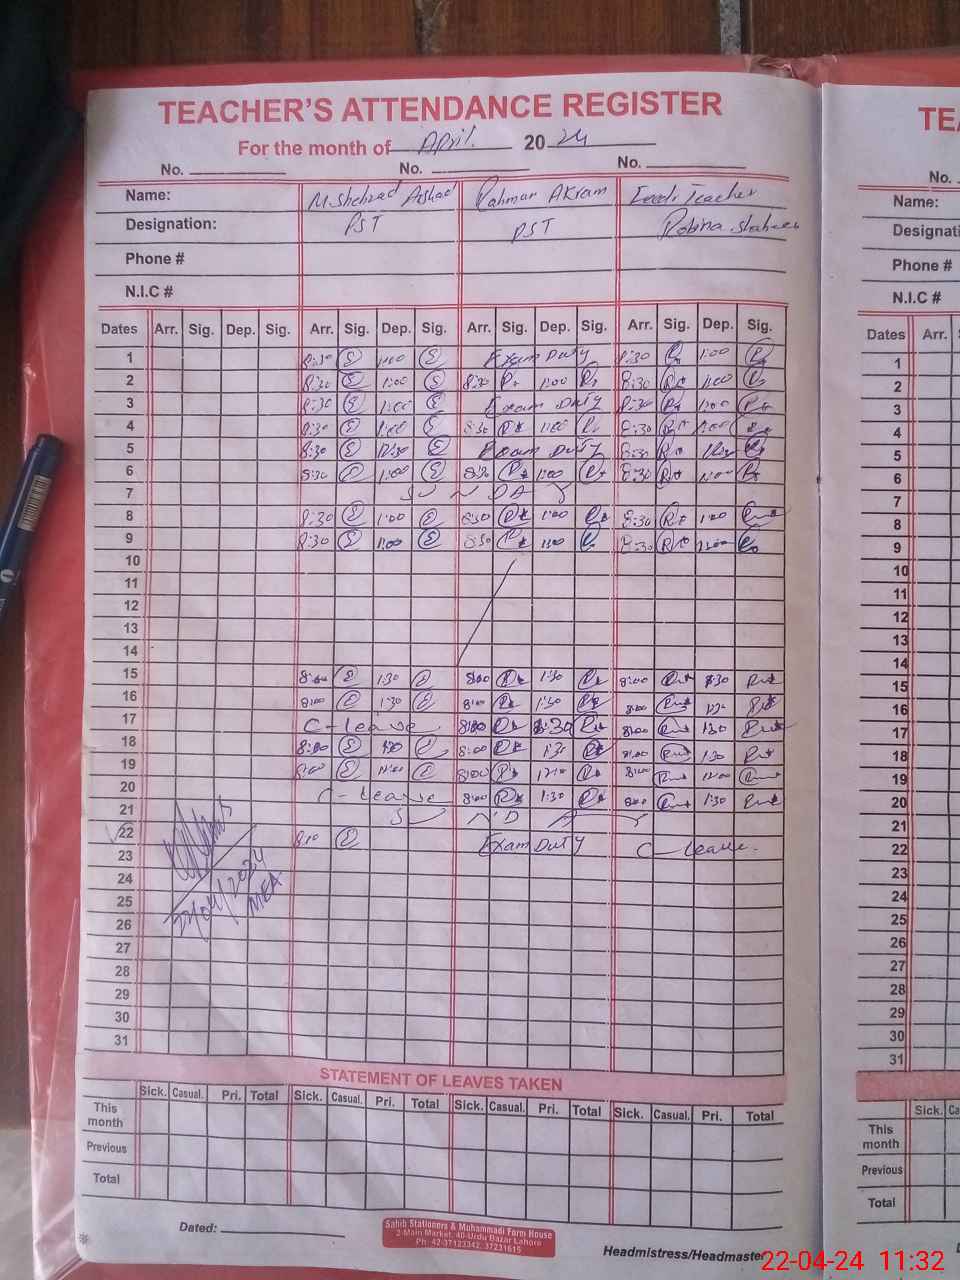 TEACHER'S ATTENDANCE REGISTER
For the month of April. 2024
No. No. No.
Name: M. Shehzad Ashad Rahmar AKram Lead. Teacher
Designation: PST PST Robina Shaheen
Phone #
N.I.C #
Dates Arr. Sig. Dep. Sig. Arr. Sig. Dep. Sig. Arr. Sig. Dep. Sig. Arr. Sig. Dep. Sig.
1 8:30 1:00 Exam Duty 8:30 1:00
2 8:30 1:00 8:30 1:00 8:30 1:00
3 8:30 1:00 Exam Duty 8:30 1:00
4 8:30 1:00 8:30 1:00 8:30 1:00
5 8:30 12:30 Exam Duty 8:30
6 8:30 1:00 8:30 1:00 8:30 1:00
7 SUNDAY
8 8:30 1:00 8:30 1:00 8:30 1:00
9 8:30 1:00 8:30 1:00 8:30 1:00
10
11
12
13
14
15 8:00 1:30 8:00 1:30 8:00 1:30
16 8:00 1:30 8:00 1:30 8:00 1:30
17 C-leave 8:00 1:30 8:00 1:30
18 8:00 1:30 8:00 1:30 8:00 1:30
19 8:00 12:00 8:00 12:00 8:00 12:00
20 C-Leave 8:00 1:30 8:00 1:30
21 SUNDAY
22 8:00 Exam Duty C-leave.
23
24
25
26
27
28
29
30
31
22/04/2024
MEA
STATEMENT OF LEAVES TAKEN
Sick. Casual. Pri. Total Sick. Casual. Pri. Total Sick. Casual. Pri. Total Sick. Casual. Pri. Total
This month
Previous
Total
Dated:
Sahib Stationers & Muhammadi Form House
2-Main Market, 40-Urdu Bazar Lahore
Ph: 42-37123342, 37231615
Headmistress/Headmaster
TE
No.
Name:
Designati
Phone #
N.I.C #
Dates Arr.
1
2
3
4
5
6
7
8
9
10
11
12
13
14
15
16
17
18
19
20
21
22
23
24
25
26
27
28
29
30
31
Sick. Ca
This month
Previous
Total
22-04-24 11:32